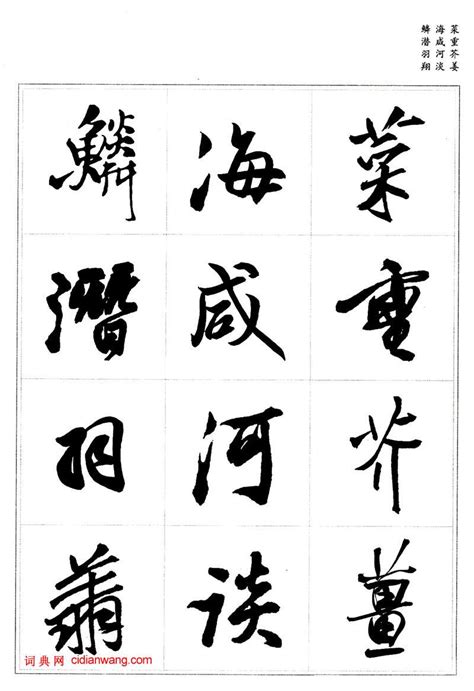 菜重芥姜
海咸河淡
鳞潜羽翔
菜重芥薑
海咸河谈
鱗潛羽
词典网 cidianwang.com